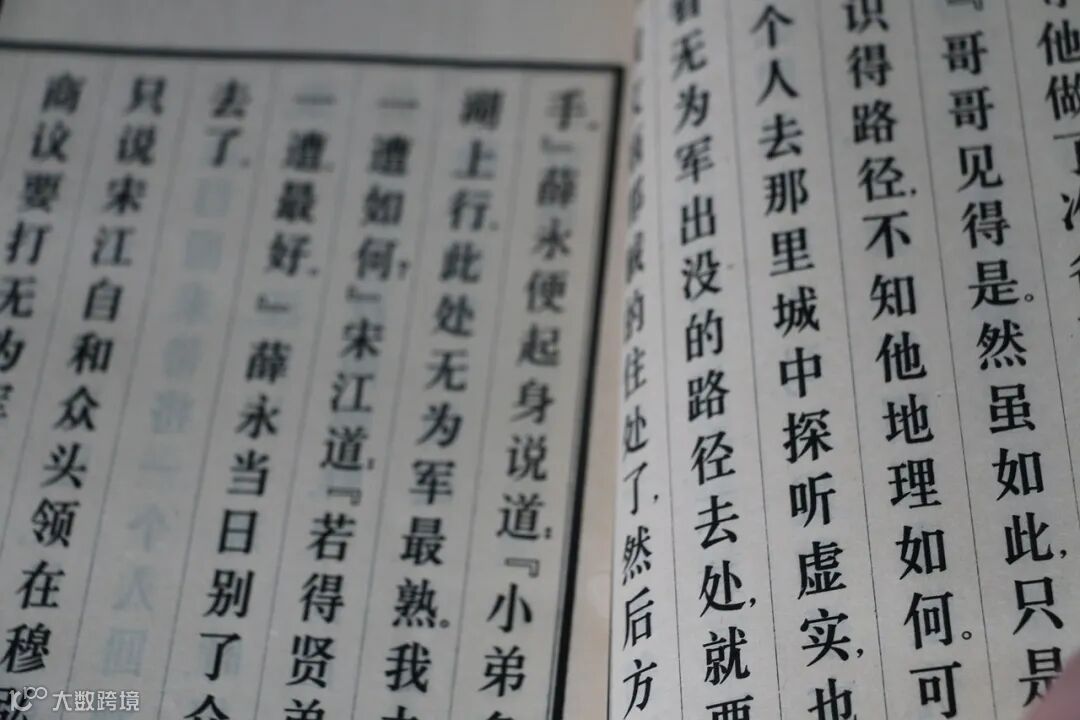 他做了
『哥哥见得是。然虽如此,只是
识得路径,不知他地理如何。可
个人去那里城中探听虚实,也
看无为军出没的路径去处,就要
的住处了,然后方
手。』薛永便起身说道:『小弟
湖上行,此处无为军最熟。我
一遭如何?』宋江道:『若得贤弟
一遭,最好。』薛永当日别了众
去了。
只说宋江自和众头领在穆
商议要打无为军
大数跨境